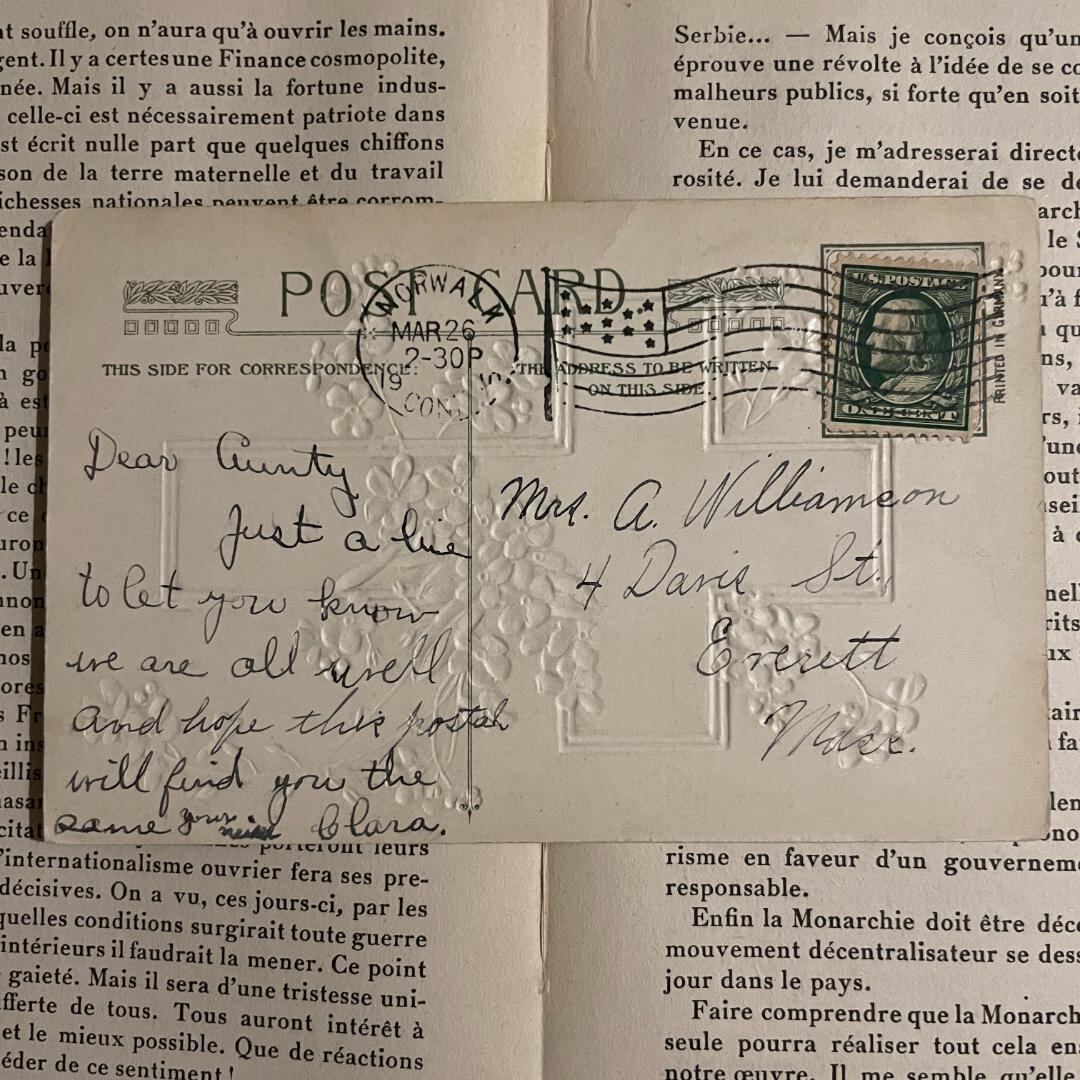 nt souffle, on n'aura qu'à ouvrir les mains.
gent. Il y a certes une Finance cosmopolite,
née. Mais il y a aussi la fortune indus-
celle-ci est nécessairement patriote dans
st écrit nulle part que quelques chiffons
son de la terre maternelle et du travail
ichesses nationales peuvent être corrom-
Serbie... — Mais je conçois qu'un
éprouve une révolte à l'idée de se co
malheurs publics, si forte qu'en soit
venue.
En ce cas, je m'adresserai directe
rosité. Je lui demanderai de se de
POST CARD
THIS SIDE FOR CORRESPONDENCE.
THE ADDRESS TO BE WRITTEN
ON THIS SIDE
NORWALK
MAR 26
2-30P
19
CONN.
U.S. POSTAGE
ONE CENT
PRINTED IN GERMANY
Dear Aunty
Just a line
to let you know
we are all well
and hope this postal
will find you the
same your niece Clara.
Mrs. A. Williamson
4 Davis St.
Everett
Mass.
porteront leurs
l'internationalisme ouvrier fera ses pre-
décisives. On a vu, ces jours-ci, par les
quelles conditions surgirait toute guerre
intérieurs il faudrait la mener. Ce point
gaieté. Mais il sera d'une tristesse uni-
fferte de tous. Tous auront intérêt à
et le mieux possible. Que de réactions
éder de ce sentiment !
risme en faveur d'un gouverneme
responsable.
Enfin la Monarchie doit être déce
mouvement décentralisateur se dess
jour dans le pays.
Faire comprendre que la Monarch
seule pourra réaliser tout cela ens
notre œuvre. Il me semble qu'elle